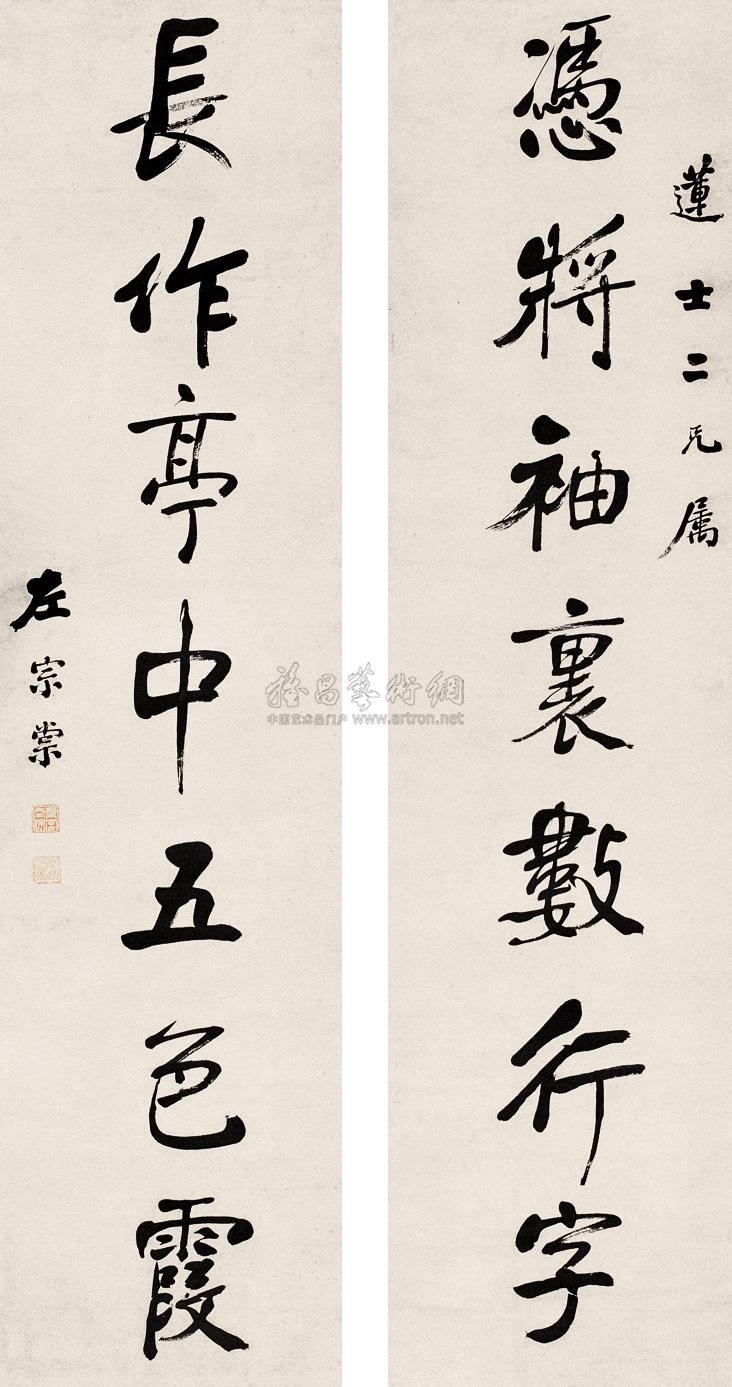 蓮士二兄属
憑將袖裏數行字
長作亭中五色霞
左宗棠
雅昌藝術網
中国艺术品门户 www.artron.net